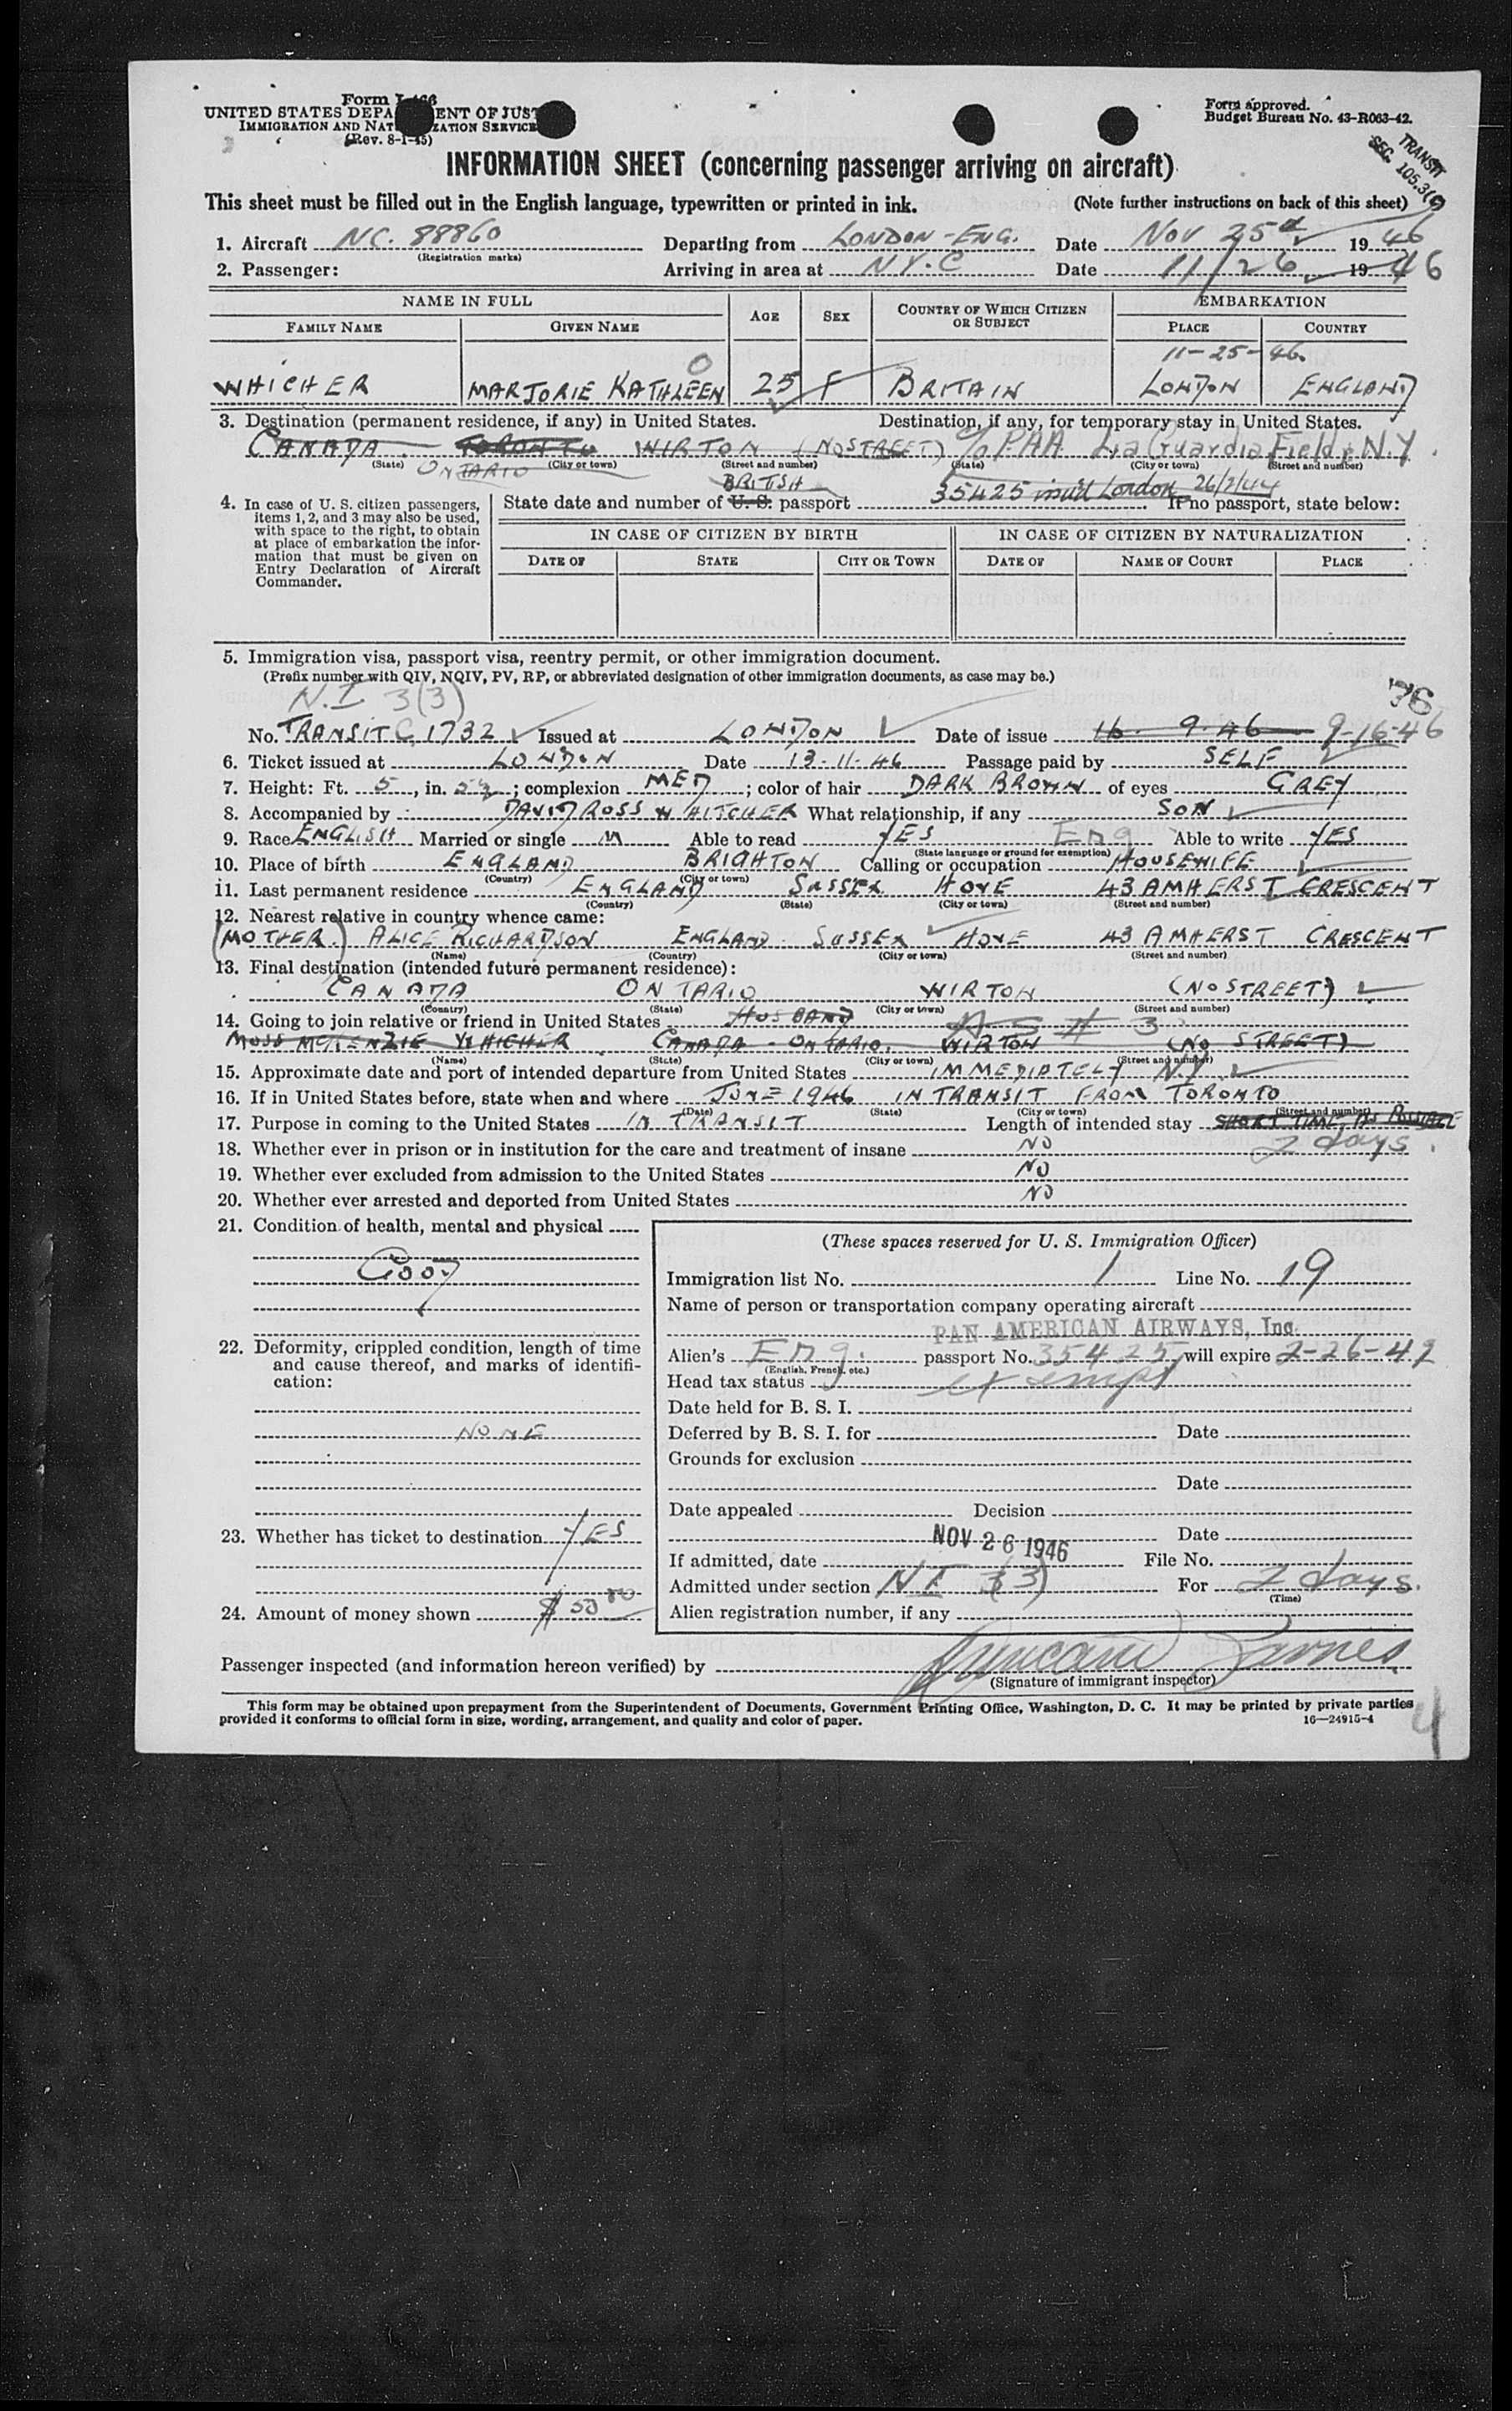 Form I-466
UNITED STATES DEPA ENT OF JUST
IMMIGRATION AND NAT ZATION SERVICE
(Rev. 8-1-45)
Form approved.
Budget Bureau No. 43-R063-42.
TRANSIT
SEC. 105.3(
INFORMATION SHEET (concerning passenger arriving on aircraft)
This sheet must be filled out in the English language, typewritten or printed in ink. (Note further instructions on back of this sheet)
1. Aircraft NC. 88860 Departing from LONDON-ENG. Date NOV 25 1946
(Registration marks)
2. Passenger: Arriving in area at N.Y.C Date 11/26 1946
NAME IN FULL AGE SEX COUNTRY OF WHICH CITIZEN OR SUBJECT EMBARKATION
FAMILY NAME GIVEN NAME PLACE COUNTRY
11-25-46
WHICHER MARJORIE KATHLEEN 25 F BRITAIN LONDON ENGLAND
3. Destination (permanent residence, if any) in United States. Destination, if any, for temporary stay in United States.
CANADA TORONTO WIRTON (NO STREET) c/o PAA La Guardia Field, N.Y.
(State) ONTARIO (City or town) (Street and number) (State) (City or town) (Street and number)
BRITISH
4. In case of U. S. citizen passengers, items 1, 2, and 3 may also be used, with space to the right, to obtain at place of embarkation the information that must be given on Entry Declaration of Aircraft Commander.
State date and number of U. S. passport 35425 issued London 26/2/44 If no passport, state below:
IN CASE OF CITIZEN BY BIRTH IN CASE OF CITIZEN BY NATURALIZATION
DATE OF STATE CITY OR TOWN DATE OF NAME OF COURT PLACE
5. Immigration visa, passport visa, reentry permit, or other immigration document.
(Prefix number with QIV, NQIV, PV, RP, or abbreviated designation of other immigration documents, as case may be.)
N.I 3(3)
No. TRANSIT C 1732 Issued at LONDON Date of issue 16 9.46 9-16-46
6. Ticket issued at LONDON Date 13-11-46 Passage paid by SELF
7. Height: Ft. 5, in. 5½; complexion MED; color of hair DARK BROWN of eyes GREY
8. Accompanied by DAVID ROSS WHITCHER What relationship, if any SON
9. Race ENGLISH Married or single M Able to read YES Eng Able to write YES
(State language or ground for exemption)
10. Place of birth ENGLAND BRIGHTON Calling or occupation HOUSEWIFE
(Country) (City or town)
11. Last permanent residence ENGLAND SUSSEX HOVE 43 AMHERST CRESCENT
(Country) (State) (City or town) (Street and number)
12. Nearest relative in country whence came:
(MOTHER) ALICE RICHARDSON ENGLAND SUSSEX HOVE 43 AMHERST CRESCENT
(Name) (Country) (City or town) (Street and number)
13. Final destination (intended future permanent residence):
CANADA ONTARIO WIRTON (NO STREET)
(Country) (State) (City or town) (Street and number)
14. Going to join relative or friend in United States HUSBAND AS # 3
MCKENZIE WHICHER CANADA - ONTARIO. WIRTON (NO STREET)
(Name) (State) (City or town) (Street and number)
15. Approximate date and port of intended departure from United States IMMEDIATELY N.Y.
16. If in United States before, state when and where JUNE 1946 IN TRANSIT FROM TORONTO
(Date) (State) (City or town) (Street and number)
17. Purpose in coming to the United States IN TRANSIT Length of intended stay SHORT TIME, AS POSSIBLE
2 days.
18. Whether ever in prison or in institution for the care and treatment of insane NO
19. Whether ever excluded from admission to the United States NO
20. Whether ever arrested and deported from United States NO
21. Condition of health, mental and physical
GOOD
22. Deformity, crippled condition, length of time and cause thereof, and marks of identification:
NONE
23. Whether has ticket to destination YES
24. Amount of money shown $50 00
(These spaces reserved for U. S. Immigration Officer)
Immigration list No. 1 Line No. 19
Name of person or transportation company operating aircraft
PAN AMERICAN AIRWAYS, Inc.
Alien's Eng. passport No. 35425 will expire 2-26-49
(English, French, etc.)
Head tax status exempt
Date held for B. S. I.
Deferred by B. S. I. for Date
Grounds for exclusion
Date
Date appealed Decision
Date
NOV 26 1946
If admitted, date File No.
Admitted under section NI 3(3) For 2 days.
(Time)
Alien registration number, if any
Passenger inspected (and information hereon verified) by
(Signature of immigrant inspector)
This form may be obtained upon prepayment from the Superintendent of Documents, Government Printing Office, Washington, D. C. It may be printed by private parties
provided it conforms to official form in size, wording, arrangement, and quality and color of paper. 16—24915-4
4